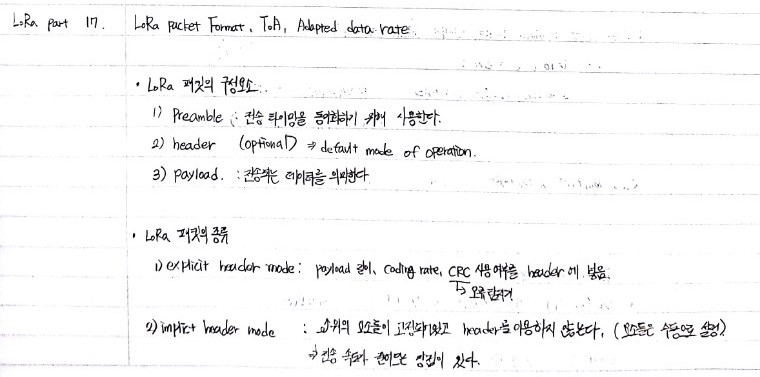 LoRa part 17. LoRa packet Format, ToA, Adapted data rate
• LoRa 패킷의 구성요소.
1) Preamble : 전송 타이밍을 동기화하기 위해 사용한다.
2) header (optional) ⇒ default mode of operation.
3) payload. : 전송하는 데이터를 의미한다
• LoRa 패킷의 종류
1) explicit header mode : payload 길이, coding rate, CRC 사용여부를 header에 붙임.
↳ 오류 탐지기
2) implict header mode : 위의 요소들이 고정되어있고 header를 이용하지 않는다. (요소들은 수동으로 설정)
⇒ 전송 속도가 장점이 있다.